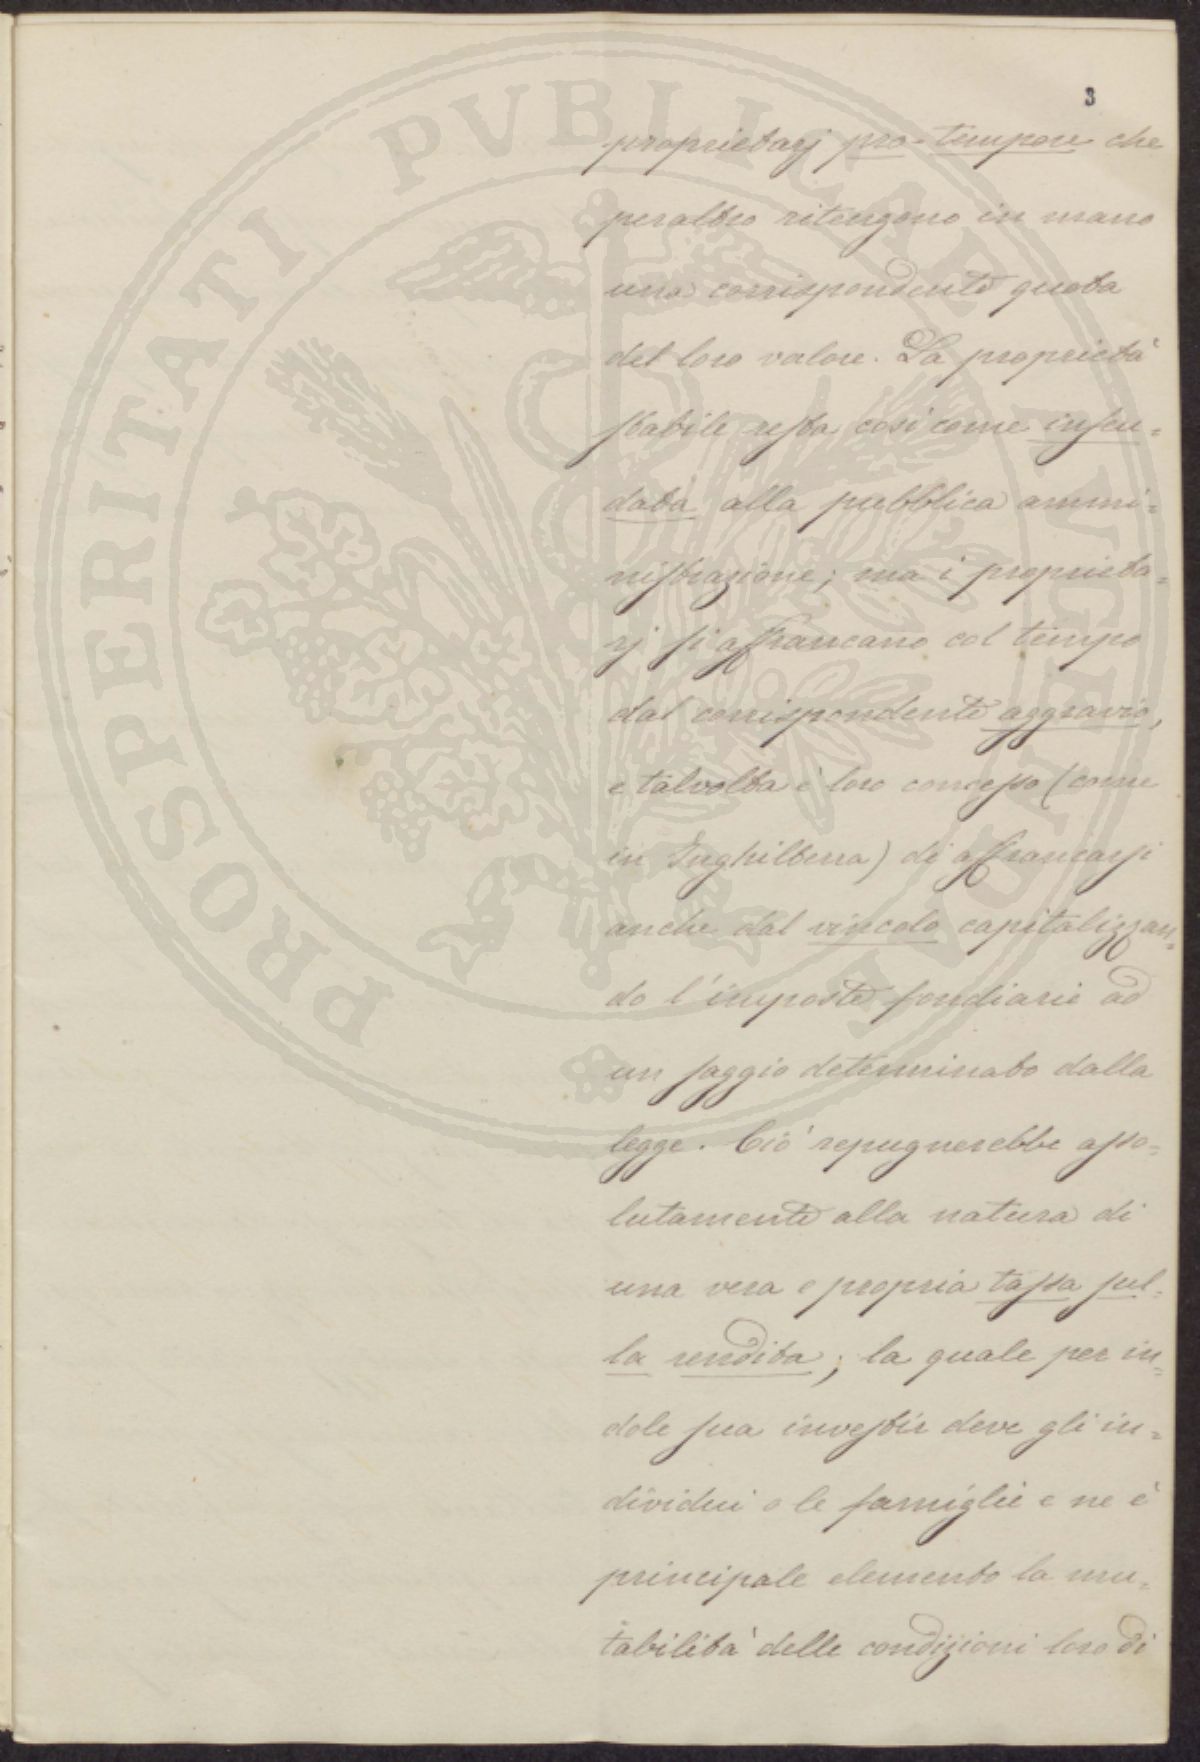 3
proprietarj pro-tempore che
peraltro ritengono in mano
una corrispondente quota
del loro valore. La proprietà
stabile resta così come infeu=
data alla pubblica ammi=
nistrazione; ma i proprieta=
rj si affrancano col tempo
dal corrispondente aggravio,
e talvolta è loro concesso (come
in Inghilterra) di affrancarsi
anche dal vincolo capitalizzan=
do l'imposte fondiarie ad
un saggio determinato dalla
legge. Ciò repugnerebbe asso=
lutamente alla natura di
una vera e propria tassa sul=
la rendita; la quale per in=
dole sua investir deve gli in=
dividui o le famiglie e ne è
principale elemento la mu=
tabilità delle condizioni loro di
PROSPERITATI PVBLICAE AVGENDAE